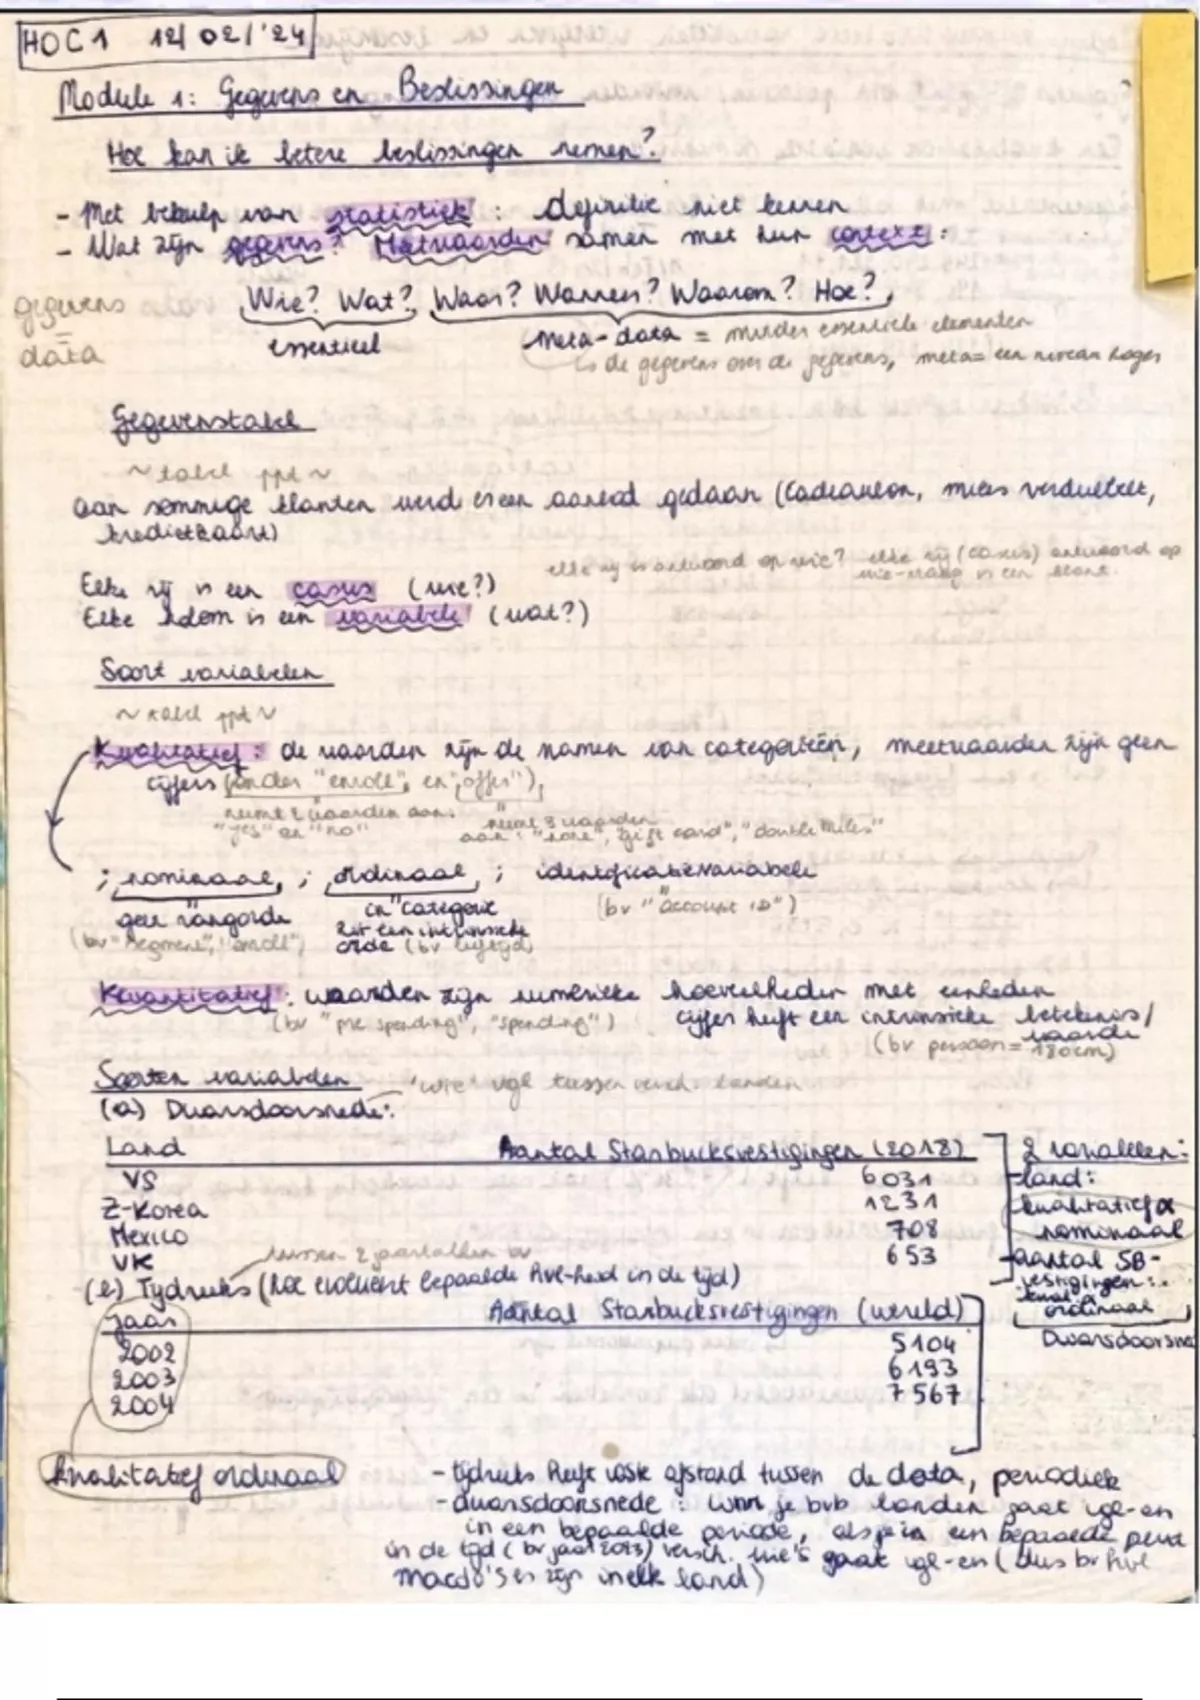 HOC 1 12/02/'24
Module 1: Gegevens en Beslissingen
Hoe kan ik betere beslissingen nemen?
- Met behulp van statistiek: definitie niet kennen
- Wat zijn gegevens? Meetwaarden samen met hun context:
Wie? Wat? Waar? Wanneer? Waarom? Hoe?
gegevens
=
data
essentieel
meta-data = minder essentiele elementen
↳ de gegevens over de gegevens, meta = een niveau hoger
Gegevenstabel
~ tabel ppt ~
aan sommige klanten werd er een aanbod gedaan (Cadeaubon, miles verdubbelt,
kredietkaart)
elke rij is antwoord op wie? elke rij (casus) antwoord op
wie-vraag is een klant.
Elke rij is een casus (wie?)
Elke kolom is een variabele (wat?)
Soort variabelen
~ tabel ppt ~
Kwalitatief: de waarden zijn de namen van categorieën, meetwaarden zijn geen
cijfers (onder "enroll", en "offer")
neemt 2 waarden aan:
"yes" en "no"
neemt 3 waarden
aan: "none", "gift card", "double miles"
; nominaal, ; ordinaal, ; identificatievariabele
geen rangorde
(bv "segment", "enroll")
in categorie
zit een intrinsieke
orde (bv leeftijd)
(bv "account ID")
Kwantitatief: waarden zijn numerieke hoeveelheden met eenheden
(bv "pre spending", "spending")
cijfer heeft een intrinsieke betekenis/
waarde
(bv persoon = 180cm)
Soorten variabelen
'wie' vgl tussen versch. landen
(a) Dwarsdoorsnede:
Land Aantal Starbucksvestigingen (2018)
VS 6031
Z-Korea 1231
Mexico 708
VK 653
2 variabelen:
- land:
kwalitatief &
nominaal
- aantal SB-
vestigingen:
ordinaal
Dwarsdoorsne
tussen 2 jaartallen bv
(b) Tijdreeks (hoe evolueert bepaalde hvl-heid in de tijd)
jaar Aantal Starbucksvestigingen (wereld)
2002 5104
2003 6193
2004 7567
kwalitatief ordinaal
- tijdreeks heeft vaste afstand tussen de data, periodiek
- dwarsdoorsnede: wnr je bvb landen gaat vgl-en
in een bepaalde periode, als je in een bepaalde
in de tijd (bv jaar 2013) versch. wie's gaat vgl-en (dus bv hvl
macdo's er zijn in elk land)